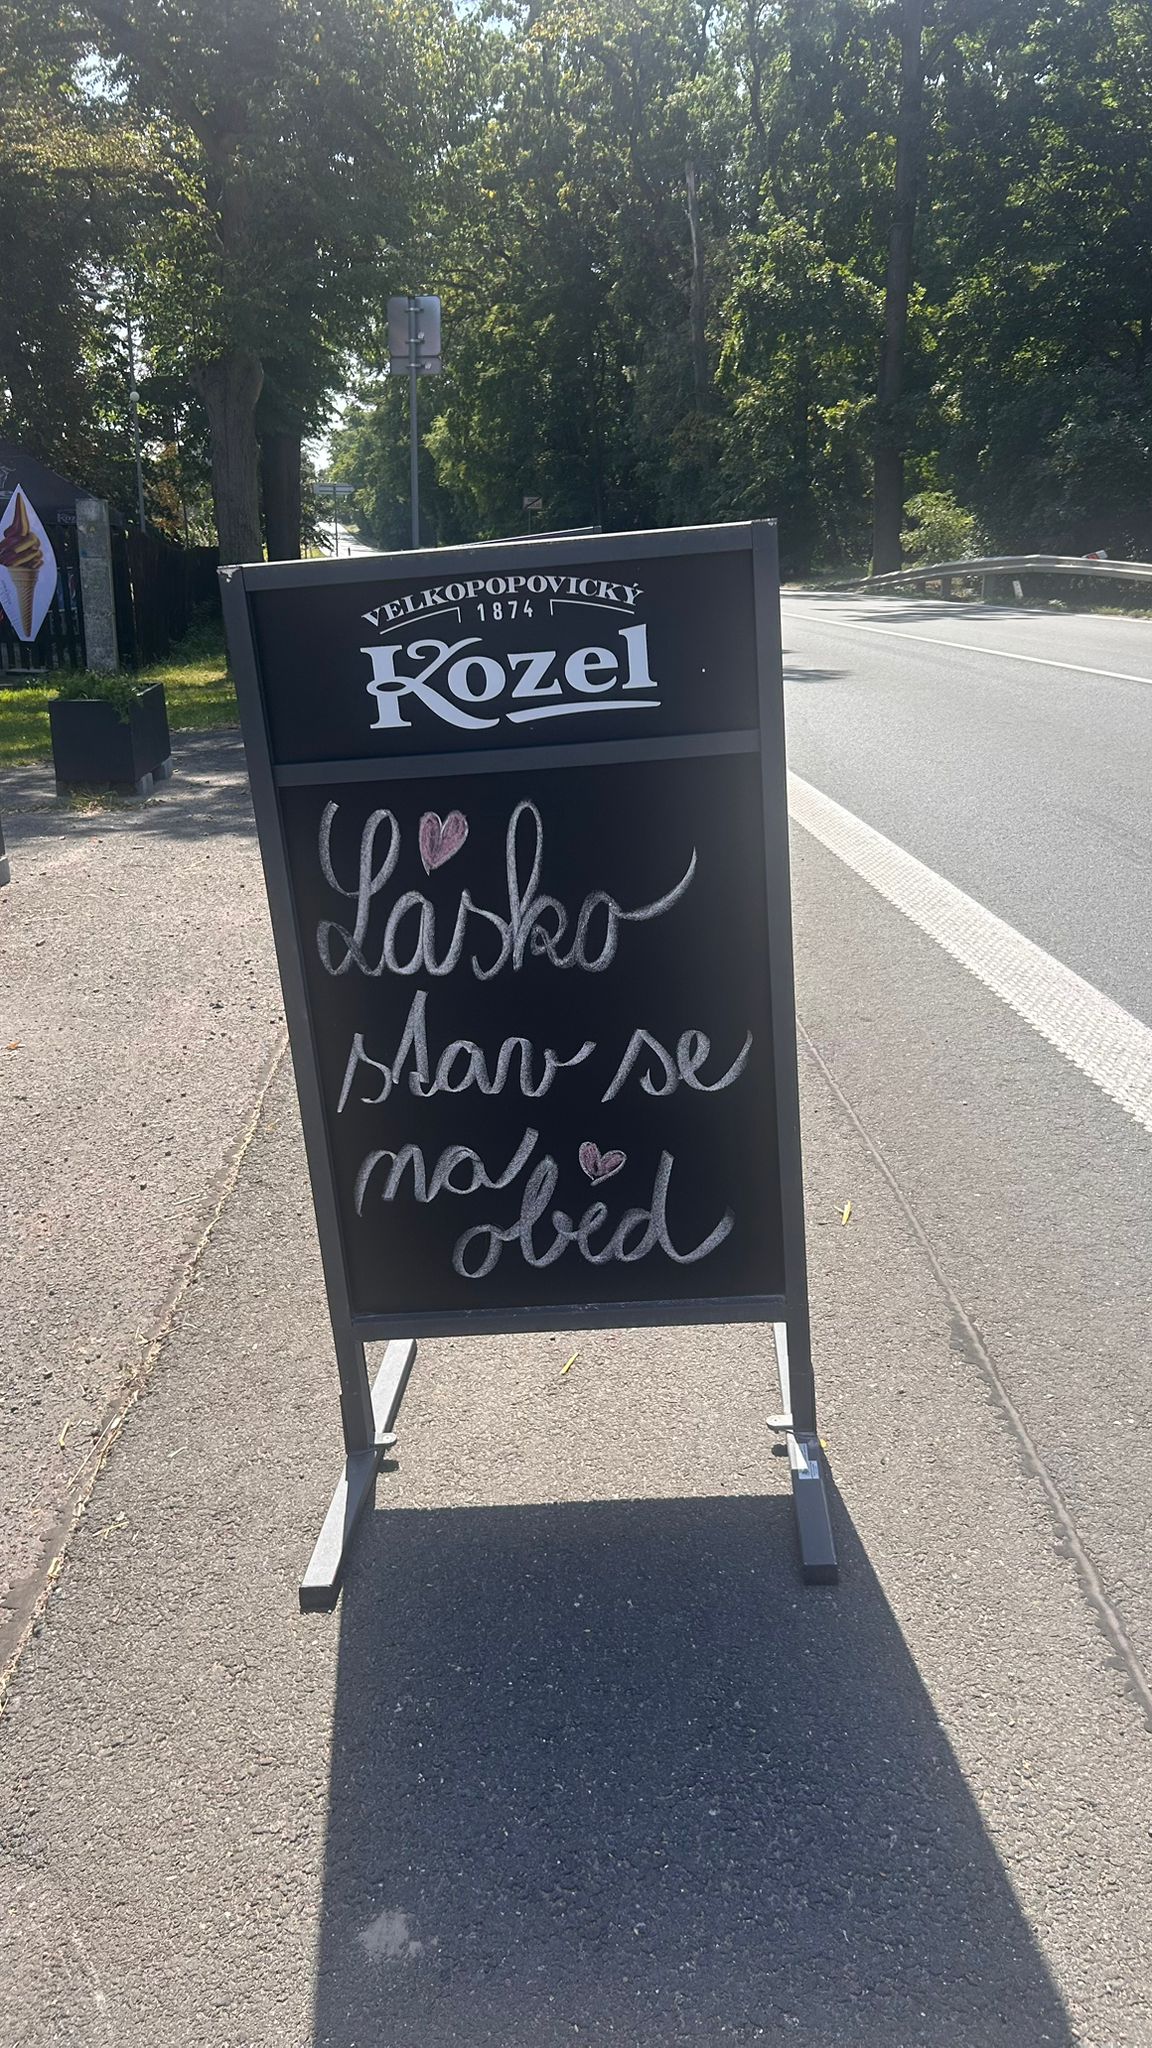 VELKOPOPOVICKÝ
1874
Kozel
Lásko
stav se
na
oběd